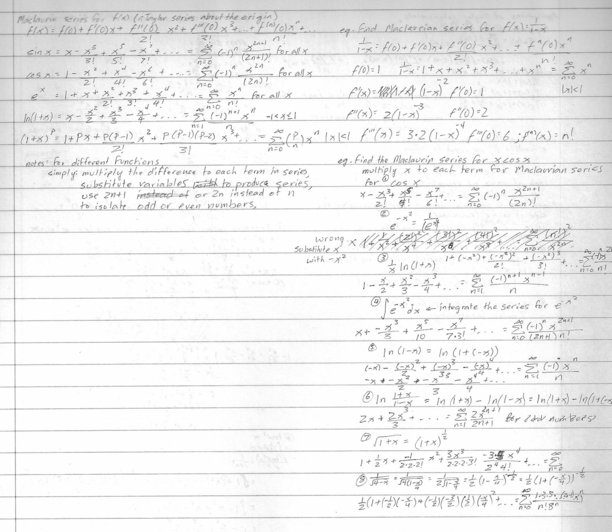 Maclaurin series for f(x) (= Taylor series about the origin)
f(x) = f(0) + f'(0)x + f''(0)/2! x² + f'''(0)/3! x³ + ... + f⁽ⁿ⁾(0)/n! xⁿ + ...
sin x = x - x³/3! + x⁵/5! - x⁷/7! + ... = ∑ n=0 ∞ (-1)ⁿ x²ⁿ⁺¹/(2n+1)! for all x
cos x = 1 - x²/2! + x⁴/4! - x⁶/6! + ... = ∑ n=0 ∞ (-1)ⁿ x²ⁿ/(2n)! for all x
eˣ = 1 + x + x²/2! + x³/3! + x⁴/4! + ... = ∑ n=0 ∞ xⁿ/n! for all x
ln(1+x) = x - x²/2 + x³/3 - x⁴/4 + ... = ∑ n=1 ∞ (-1)ⁿ⁺¹ xⁿ/n -1<x≤1
(1+x)ᴾ = 1 + Px + P(P-1)/2! x² + P(P-1)(P-2)/3! x³ + ... = ∑ n=0 ∞ (P n) xⁿ |x|<1
notes: for different functions
simply multiply the difference to each term in series,
substitute variables to produce series,
use 2n+1 or 2n instead of n
to isolate odd or even numbers,
eg. find Maclaurian series for f(x) = 1/(1-x)
1/(1-x) = f(0) + f'(0)x + f''(0)/2! x² + ... + fⁿ(0)/n! xⁿ
f(0) = 1 1/(1-x) = 1 + x + x² + x³ + ... + xⁿ = ∑ n=0 ∞ xⁿ
f'(x) = (1-x)⁻² f'(0) = 1 |x|<1
f''(x) = 2(1-x)⁻³ f''(0) = 2
f'''(x) = 3·2(1-x)⁻⁴ f'''(0) = 6 ; fⁿ(x) = n!
eg. find the Maclaurin series for x cos x
multiply x to each term for Maclaurian series
for ① cos x
x - x³/2! + x⁵/4! - x⁷/6! ... = ∑ n=0 ∞ (-1)ⁿ x²ⁿ⁺¹/(2n)!
② e^-x²
wrong
substitute x
with -x²
1 + (-x²) + (-x²)²/2! + (-x²)³/3! + ...
③ 1/x ln(1+x)
1 - x/2 + x²/3 - x³/4 + ... = ∑ n=1 ∞ (-1)ⁿ⁺¹ xⁿ⁻¹/n
④ ∫e^-x² dx ← integrate the series for e^-x²
x + -x³/3 + x⁵/10 - x⁷/7·3! + ... = ∑ n=0 ∞ (-1)ⁿ x²ⁿ⁺¹/(2n+1)n!
⑤ ln(1-x) = ln(1+(-x))
(-x) - (-x)²/2 + (-x)³/3 - (-x)⁴/4 + ... = ∑ n=1 ∞ (-1)xⁿ/n
-x + -x²/2 + -x³/3 - x⁴/4 + ...
⑥ ln (1+x)/(1-x) = ln(1+x) - ln(1-x) = ln(1+x) - ln(1+(-x
2x + 2x³/3 + ... = ∑ n=1 ∞ 2x²ⁿ⁺¹/2n+1 for odd numbers
⑦ √1+x = (1+x)^½
1 + ½x + -1/2·2·2! x² + 3x³/2·2·2·3!